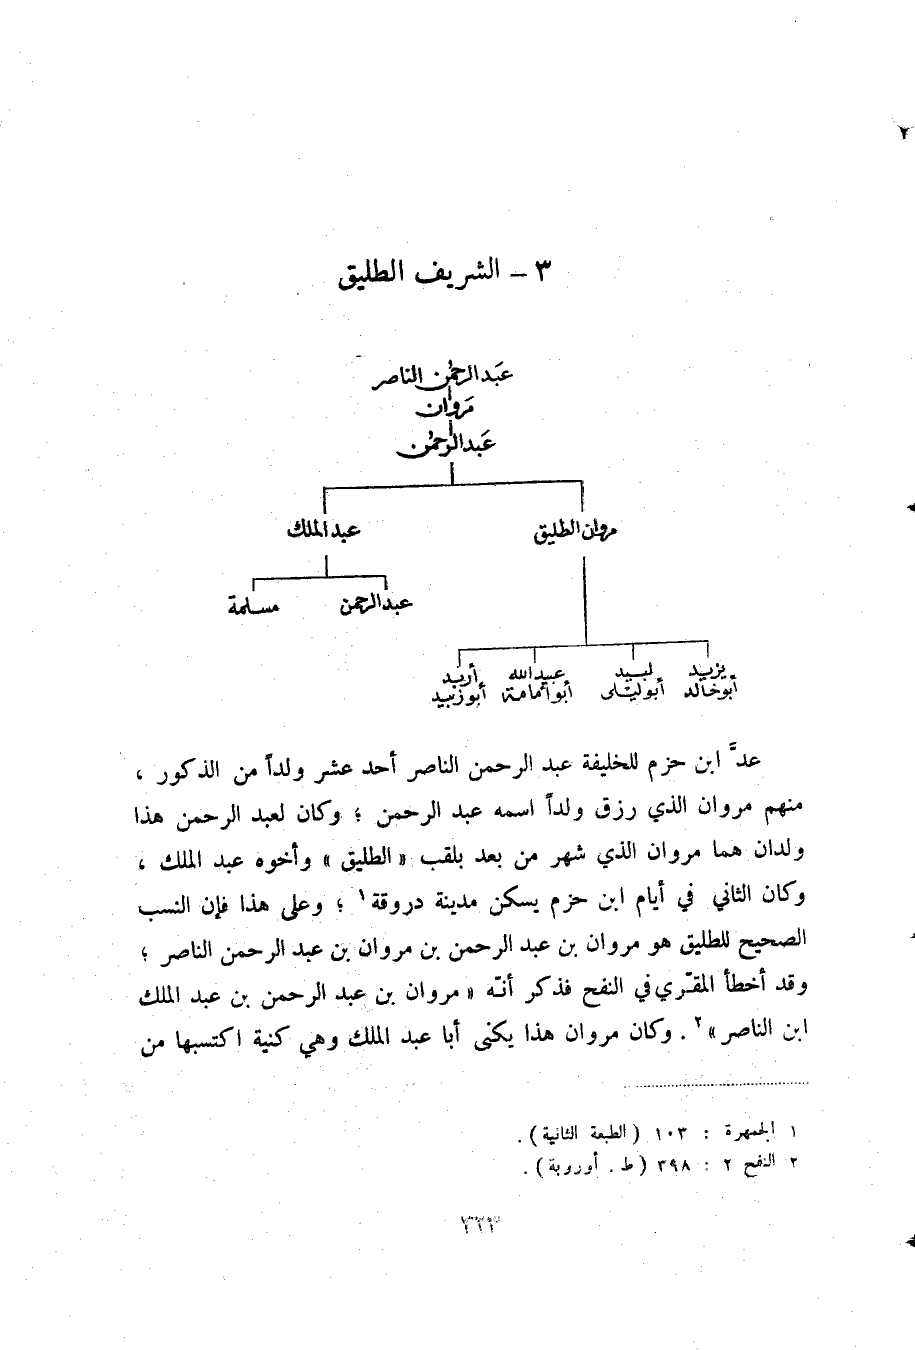 ٣ – الشريف الطليق
عبد الرحمن الناصر
مروان
عبد الرحمن
مروان الطليق
عبد الملك
عبد الرحمن
مسلمة
يزيد
أبو خالد
لبيد
أبو ليلى
عبيد الله
أبو أمامة
أربد
أبو زبيد
عدَّ ابن حزم للخليفة عبد الرحمن الناصر أحد عشر ولداً من الذكور ،
منهم مروان الذي رزق ولداً اسمه عبد الرحمن ؛ وكان لعبد الرحمن هذا
ولدان هما مروان الذي شهر من بعد بلقب « الطليق » وأخوه عبد الملك ،
وكان الثاني في أيام ابن حزم يسكن مدينة دروقة١ ؛ وعلى هذا فإن النسب
الصحيح للطليق هو مروان بن عبد الرحمن بن مروان بن عبد الرحمن الناصر ؛
وقد أخطأ المقّري في النفح فذكر أنّه « مروان بن عبد الرحمن بن عبد الملك
ابن الناصر »٢ . وكان مروان هذا يكنى أبا عبد الملك وهي كنية اكتسبها من
١ الجمهرة : ١٠٣ ( الطبعة الثانية ) .
٢ النفح ٢ : ٣٩٨ ( ط . أوروبة ) .
٢٢٣